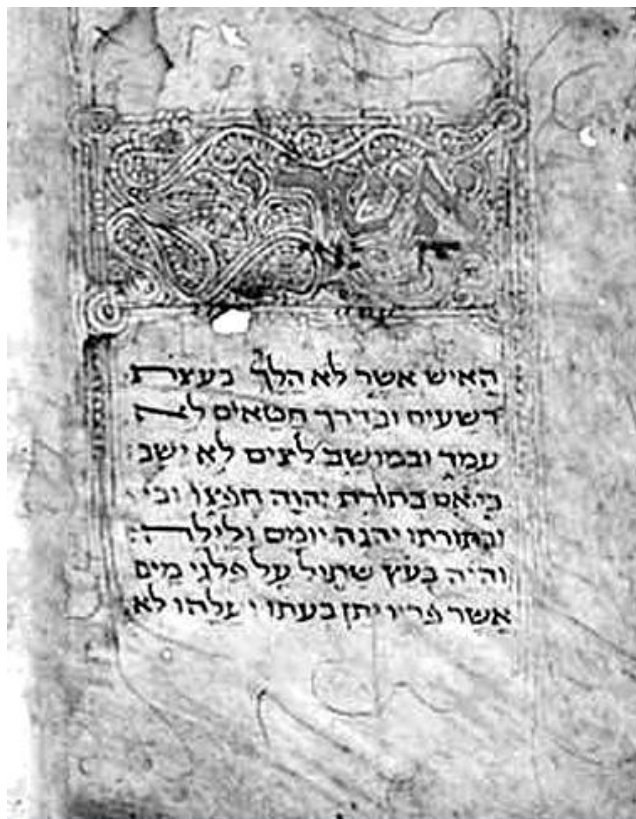 אשרי
האיש אשר לא הלך בעצת
רשעים ובדרך חטאים לא
עמד ובמושב ליצים לא ישב
כי אם בתורת יהוה חפצו ובי
ובתורתו יהגה יומם ולילה:
והיה כעץ שתול על פלגי מים
אשר פריו יתן בעתו ועלהו לא